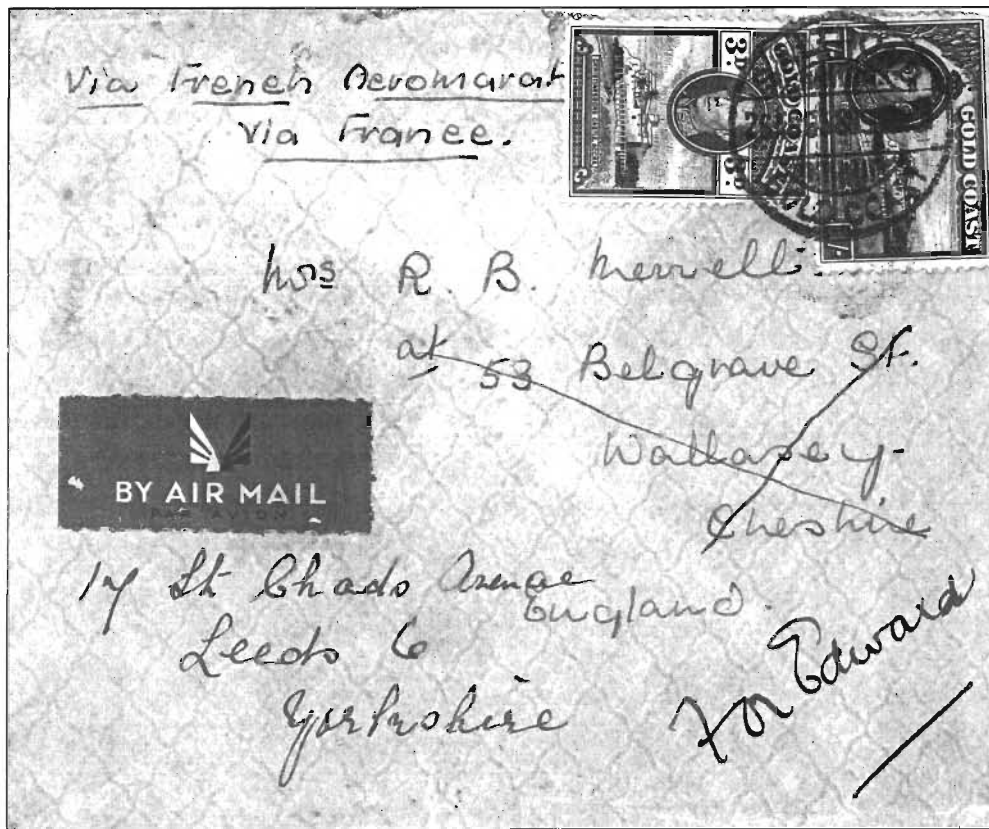 Via French Aeromarat
Via France.
3D
GOLD COAST
GOLD COAST
1/-
Mrs R. B. Merrell
at 53 Belgrave St.
Wallasey
Cheshire
England.
BY AIR MAIL
PAR AVION
17 St Chads Avenue
Leeds 6
Yorkshire
For Edward